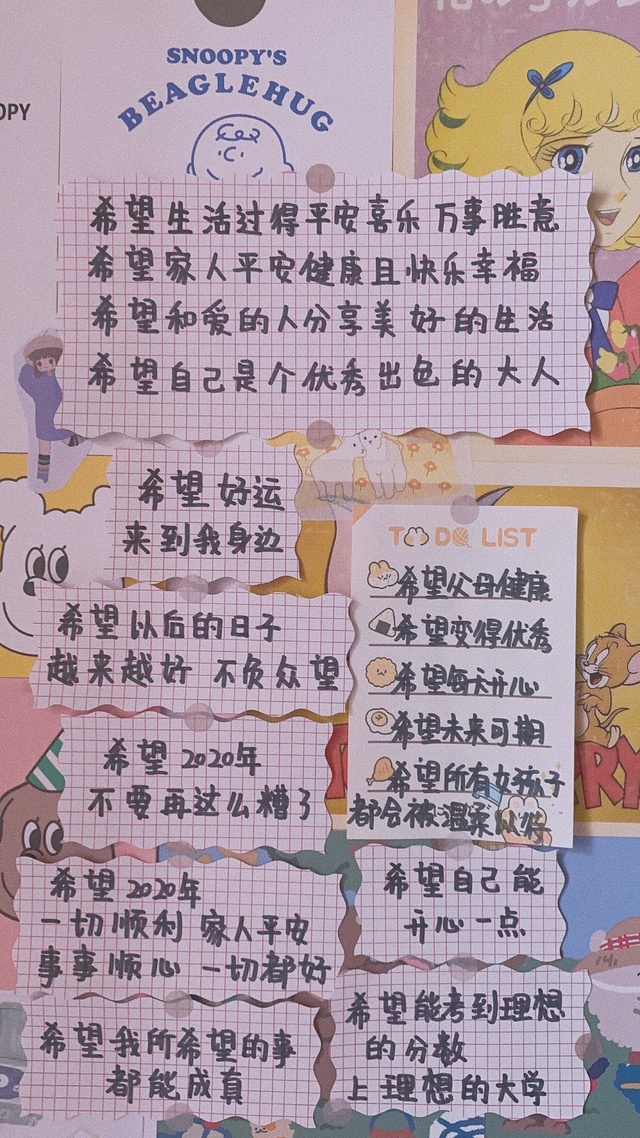 SNOOPY'S
BEAGLEHUG
OPY
希望生活过得平安喜乐 万事胜意
希望家人平安健康且快乐幸福
希望和爱的人分享美好的生活
希望自己是个优秀出色的大人
希望好运
来到我身边
TO DO LIST
希望父母健康
希望变得优秀
希望每天开心
希望未来可期
希望所有女孩子
都会被温柔以待
希望以后的日子
越来越好 不负众望
希望 2020年
不要再这么糟了
希望 2020年
一切顺利 家人平安
事事顺心 一切都好
希望自己能
开心一点
希望我所希望的事
都能成真
希望能考到理想
的分数
上理想的大学